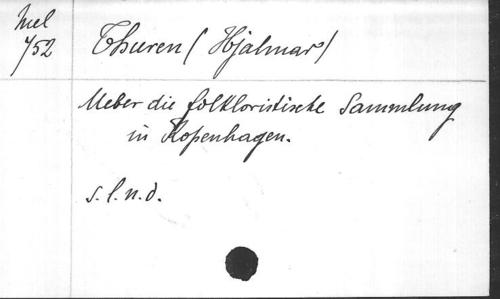 Mel
752
Thuren (Hjalmar)
Ueber die folkloristische Sammlung
in Kopenhagen.
s.l.n.d.